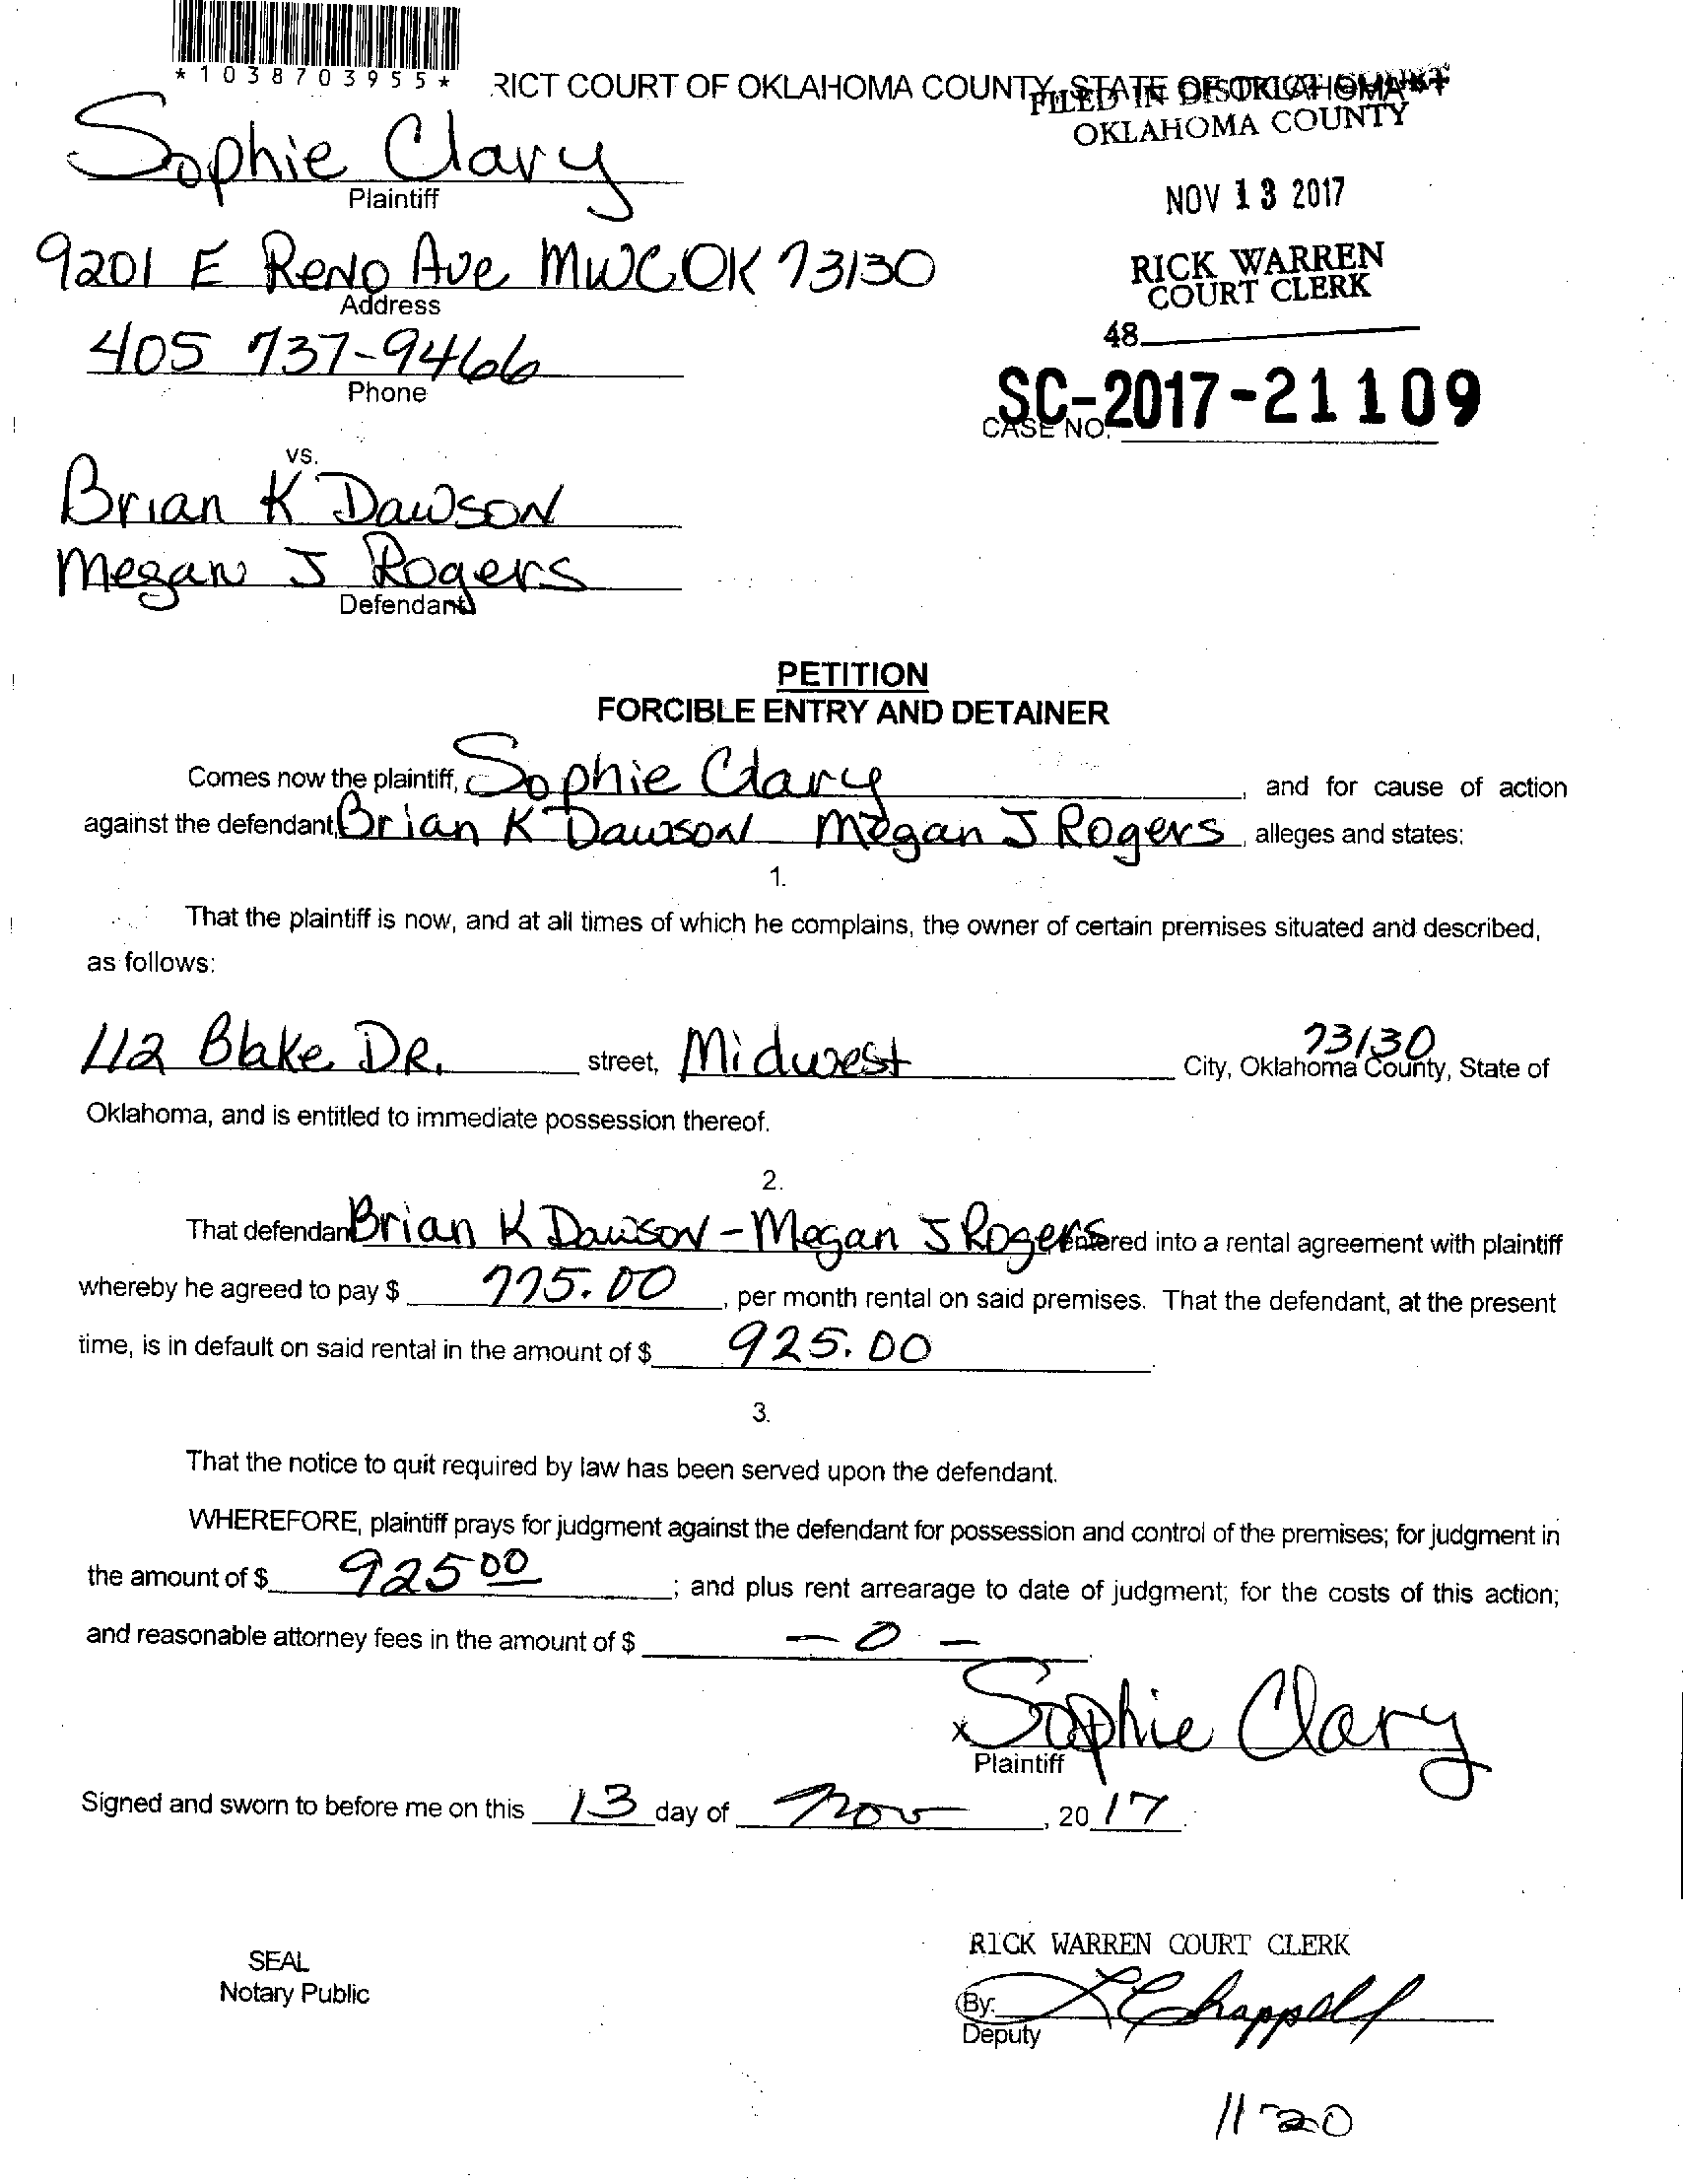 *1038703955*
RICT COURT OF OKLAHOMA COUNTY, STATE OF OKLAHOMA
FILED IN DISTRICT COURT
OKLAHOMA COUNTY
Sophie Clary
Plaintiff
NOV 13 2017
9201 E Reno Ave MWC OK 73130
Address
RICK WARREN
COURT CLERK
405 737-9466
Phone
48
SC-2017-21109
CASE NO.
vs.
Brian K Dawson
Megan J Rogers
Defendants
PETITION
FORCIBLE ENTRY AND DETAINER
Comes now the plaintiff, Sophie Clary, and for cause of action
against the defendant, Brian K Dawson Megan J Rogers, alleges and states:
1.
That the plaintiff is now, and at all times of which he complains, the owner of certain premises situated and described,
as follows:
112 Blake DR. street, Midwest City, Oklahoma County, State of
73130
Oklahoma, and is entitled to immediate possession thereof.
2.
That defendant Brian K Dawson - Megan J Rogers entered into a rental agreement with plaintiff
whereby he agreed to pay $ 775.00, per month rental on said premises. That the defendant, at the present
time, is in default on said rental in the amount of $ 925.00.
3.
That the notice to quit required by law has been served upon the defendant.
WHEREFORE, plaintiff prays for judgment against the defendant for possession and control of the premises; for judgment in
the amount of $ 925 00; and plus rent arrearage to date of judgment; for the costs of this action;
and reasonable attorney fees in the amount of $ - 0 -.
x Sophie Clary
Plaintiff
Signed and sworn to before me on this 13 day of Nov, 20 17.
SEAL
Notary Public
RICK WARREN COURT CLERK
By: L Chappell
Deputy
11-20